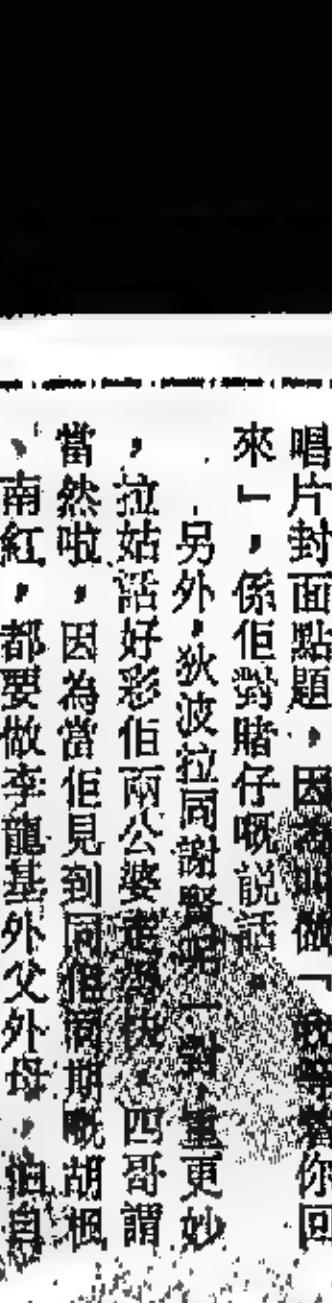 唱片封面點題，因為叫做「我等着你回
來」，係佢對賭仔嘅説話。
另外，狄波拉同謝賢呢一對，重更妙
，拉姑話好彩佢兩公婆走得快，四哥謂
當然啦，因為當佢見到同佢同期嘅胡楓
、南紅，都要做李龍基外父外母，怕自